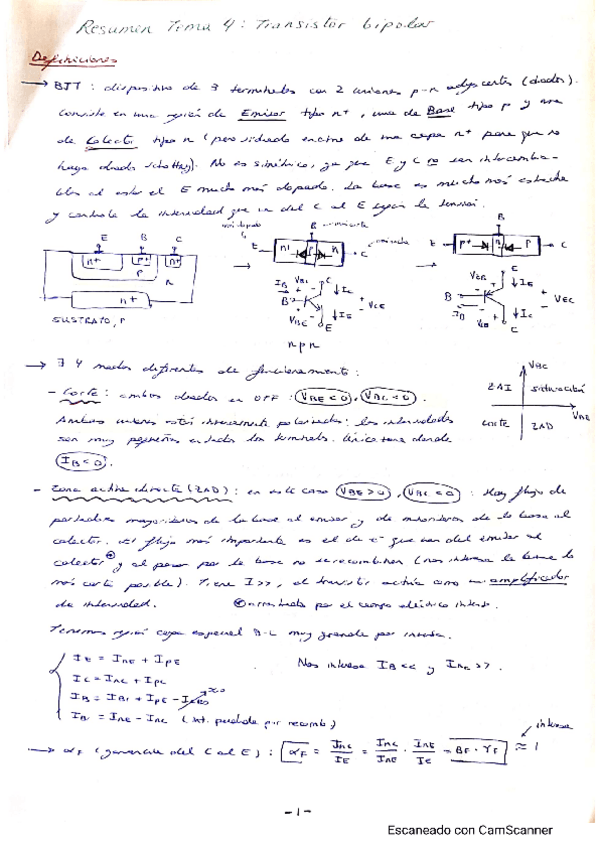 Resumen Tema 4: Transistor bipolar
Definiciones
→ BJT: dispositivo de 3 terminales con 2 uniones p-n adyacentes (diodos).
Consiste en una región de Emisor tipo n+, una de Base tipo p y una
de Colector tipo n (pero situado encima de una capa n+ para que no
haya diodo Schottky). No es simétrico, ya que E y C no son intercambia-
bles al estar el E mucho más dopado. La base es mucho más estrecha
y controla la intensidad que va del C al E según la tensión.
E B C
n+ p+ n+
p
n
n+
SUSTRATO, P
→
B
E n+ p n C
IB VBC C IC
B + VCE
VBE IE
E
npn
→
B
E p+ n p C
VEB E IE
B VEC
IB VCB IC
C
→ ∃ 4 modos diferentes de funcionamiento:
- Corte: ambos diodos en OFF: VBE < 0, VBC < 0.
Ambas uniones están inversamente polarizadas: las intensidades
son muy pequeñas en todos los terminales. Única zona donde
IB < 0.
VBC
ZAI saturación
VBE
corte ZAD
- Zona activa directa (ZAD): en este caso VBE > 0, VBC < 0: Hay flujo de
portadores mayoritarios de la base al emisor y de minoritarios de la base al
colector. El flujo más importante es el de e- que van del emisor al
colector y al pasar por la base no se recombinan (nos interesa la base lo
más corta posible). Tiene I>>, el transistor actúa como un amplificador
de intensidad. arrastrado por el campo eléctrico intenso.
Tenemos región carga espacial B-C muy grande por inversa.
IE = InE + IpE
IC = InC + IpC
IB = IB1 + IpE - ICBO ≈0
IB1 = InE - InC (int. perdida por recomb)
Nos interesa IB << y InE >>.
→ αF (ganancia del C al E): αF = InC/IE = InC/InE · InE/IE = BF · γF ≈ 1
interesa
-1-
Escaneado con CamScanner